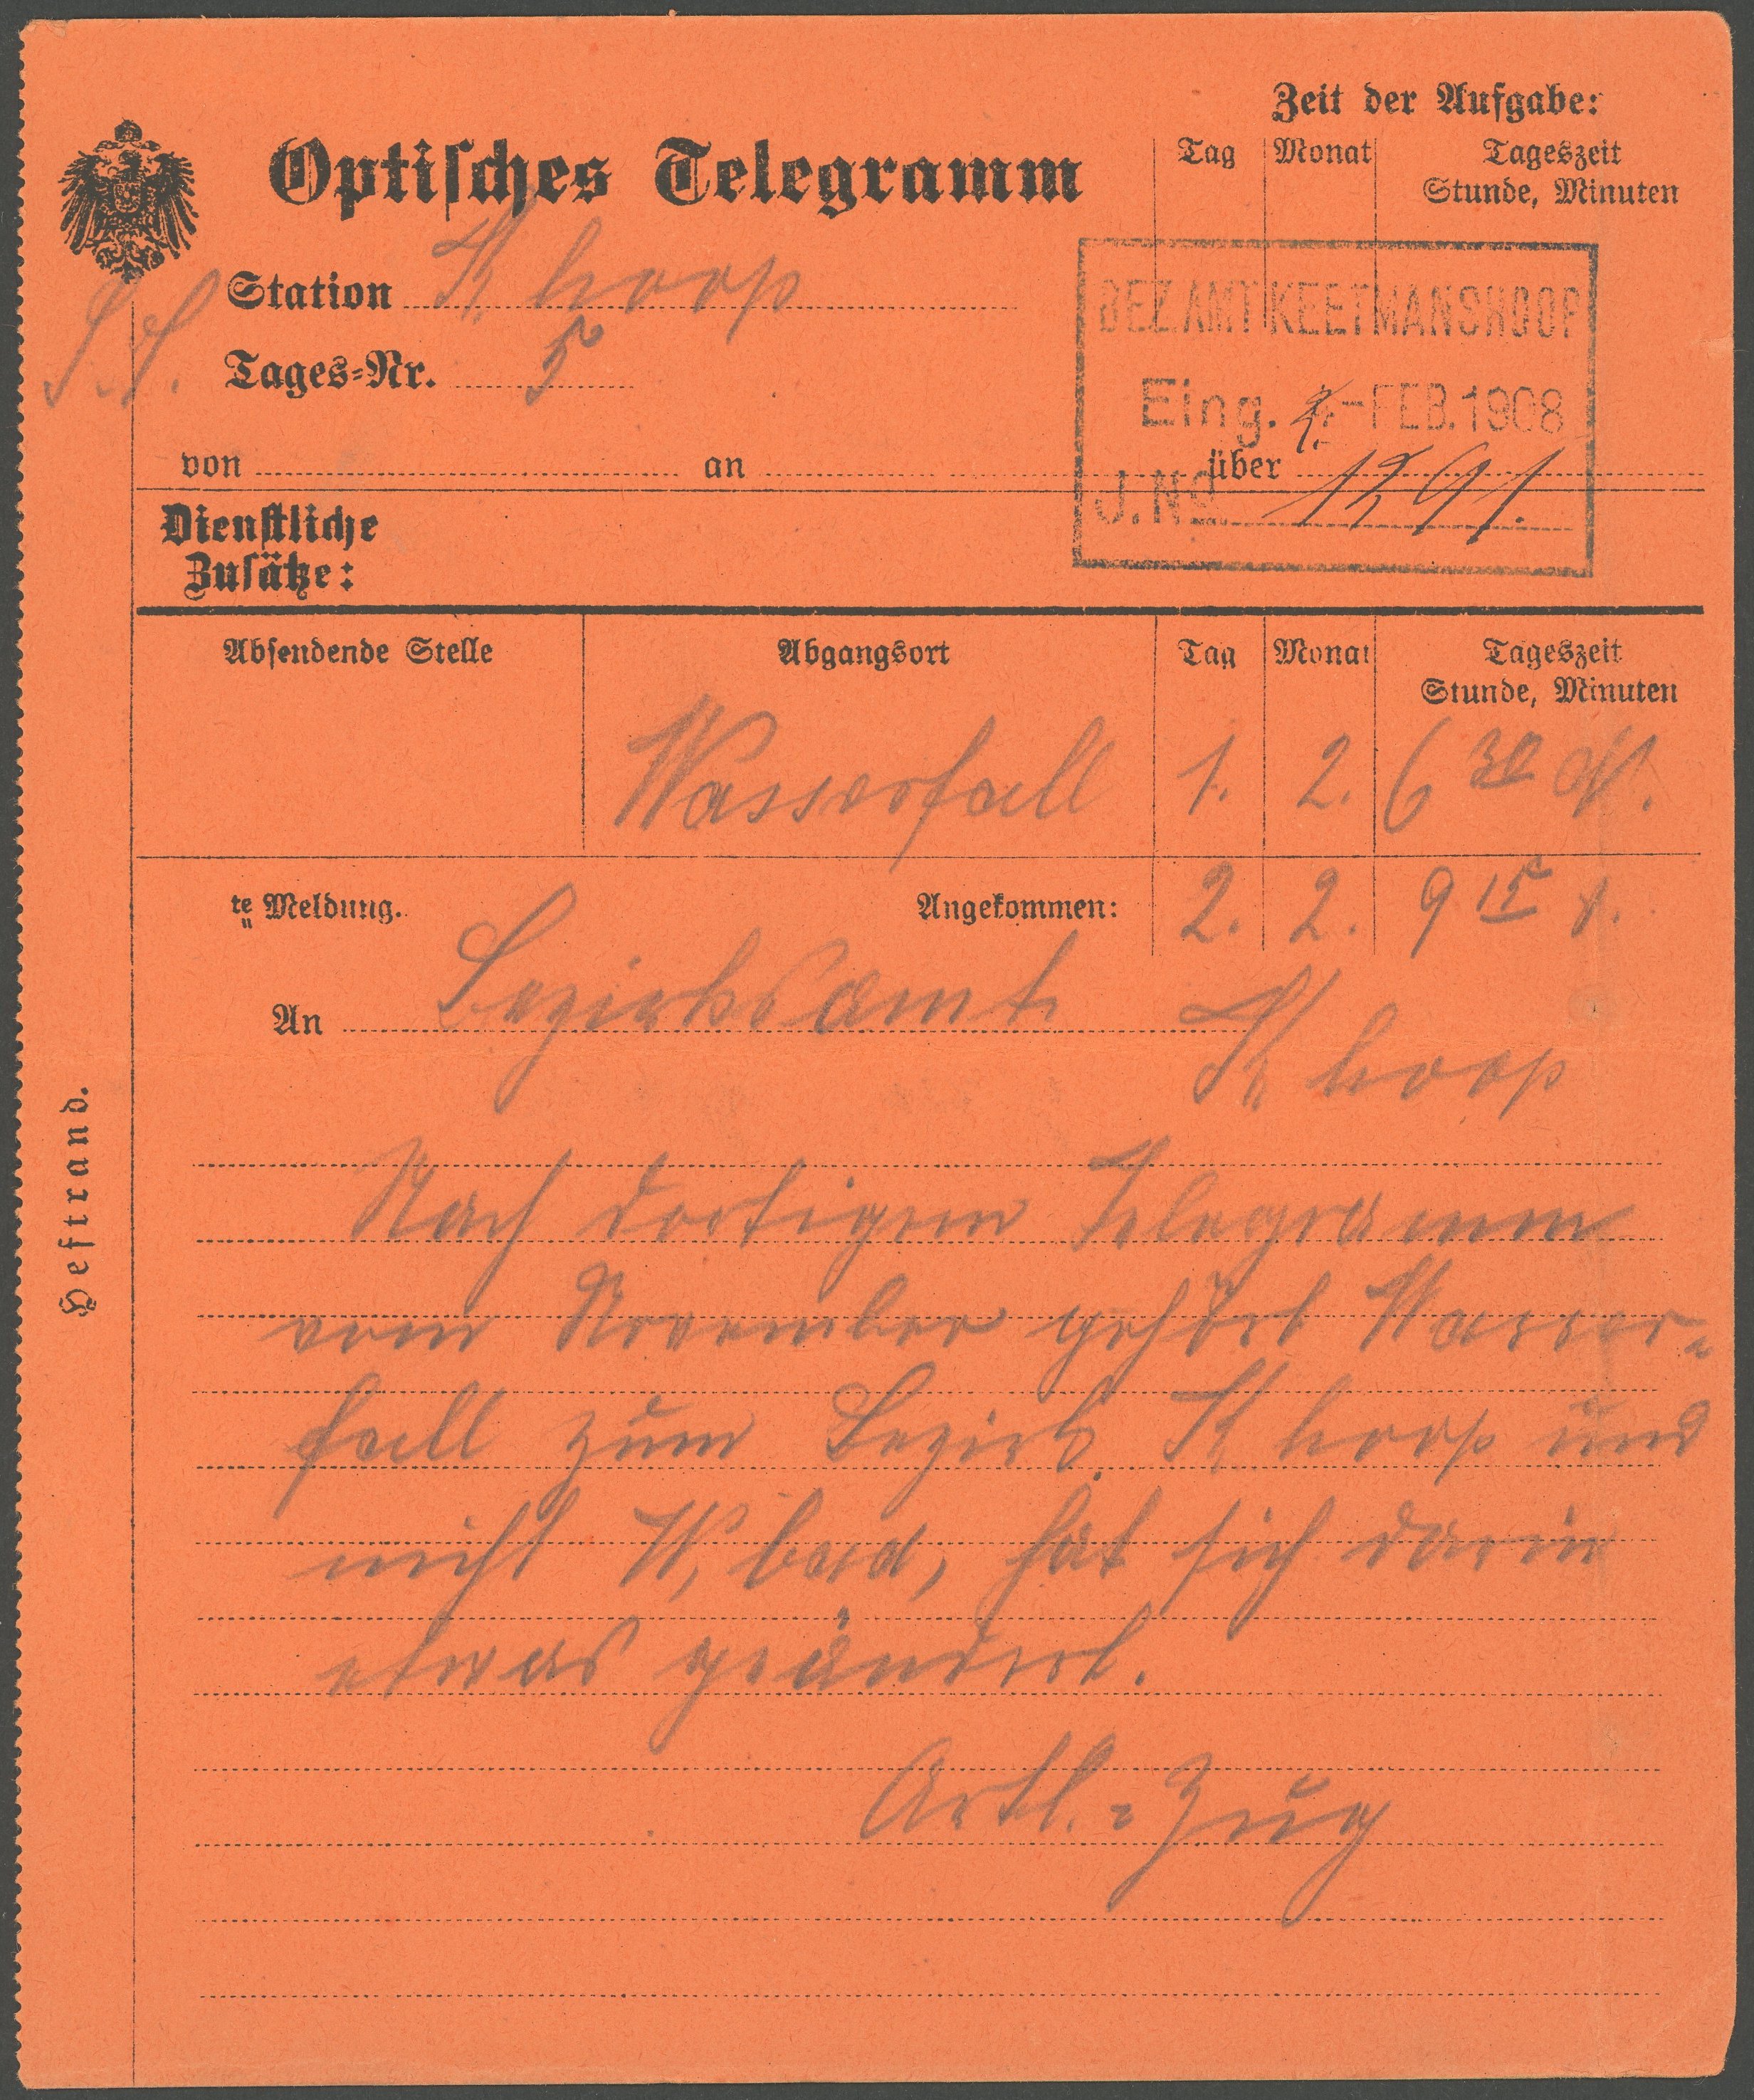 Zeit der Aufgabe:
Optisches Telegramm
Tag Monat Tageszeit
Stunde, Minuten
Station K hoop
S. f.
Tages-Nr. 5
BEZ.AMT KEETMANSHOOP
Eing. 2. - FEB. 1908
J. No. 1291.
von an über
Dienstliche
Zusätze:
Absendende Stelle Abgangsort Tag Monat Tageszeit
Stunde, Minuten
Wasserfall 1. 2. 6 30
te Meldung. Angekommen: 2. 2. 9 15
An Bezirksamt
K hoop
Heftrand.
Nach dortigem Telegramm
vom November gehört Wasser=
fall zum Bezirk K hoop und
nicht W, bad, hat sich darin
etwas geändert.
Artl. = Zug